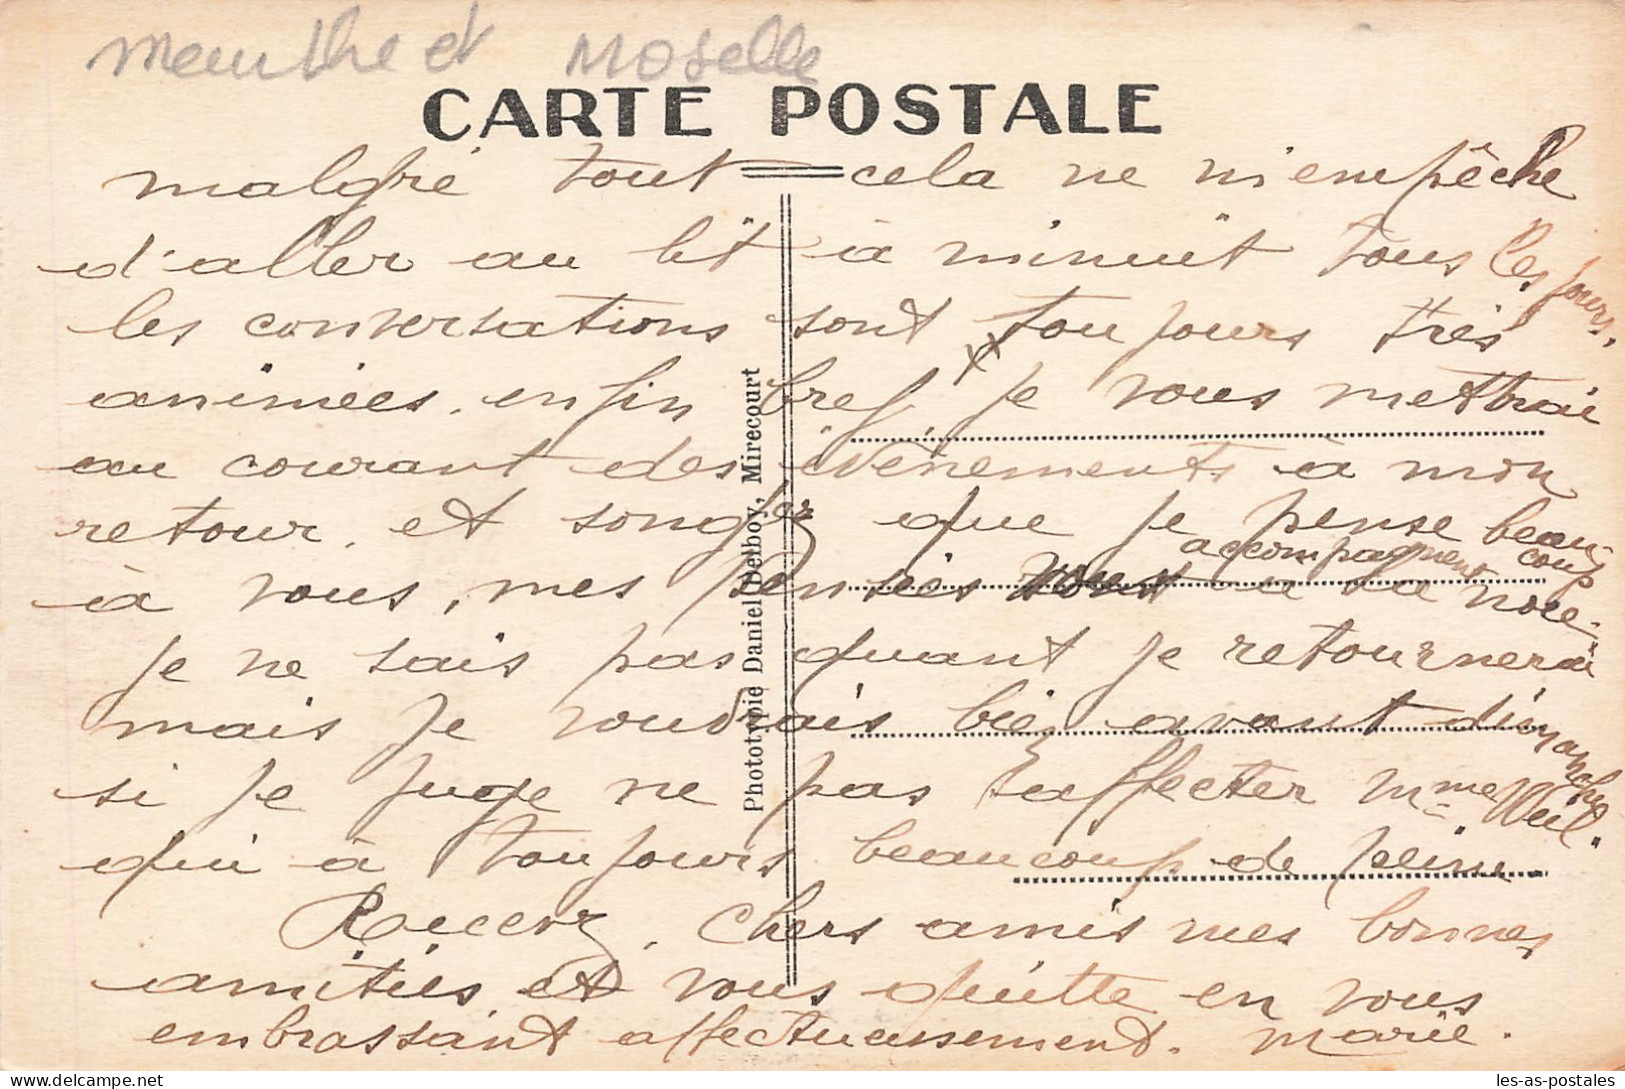 Meurthe et Moselle
CARTE POSTALE
malgré tout cela ne m'empêche
d'aller au lit à minuit tous les jours,
les conversations sont toujours très
animées. enfin bref, je vous mettrai
au courant des évènements à mon
retour, et songez que je pense beaucoup
à vous, mes pensées vous
accompagnent
je ne sais pas quant je retournerai
mais je voudrais bien avant dimanche
si je juge ne pas affecter Mme Weil.
qui à toujours beaucoup de peine.
Recevez, chers amis mes bonnes
amitiés et vous quitte en vous
embrassant affectueusement. Marie.
Phototypie Daniel Delboy, Mirecourt
les-as-postales